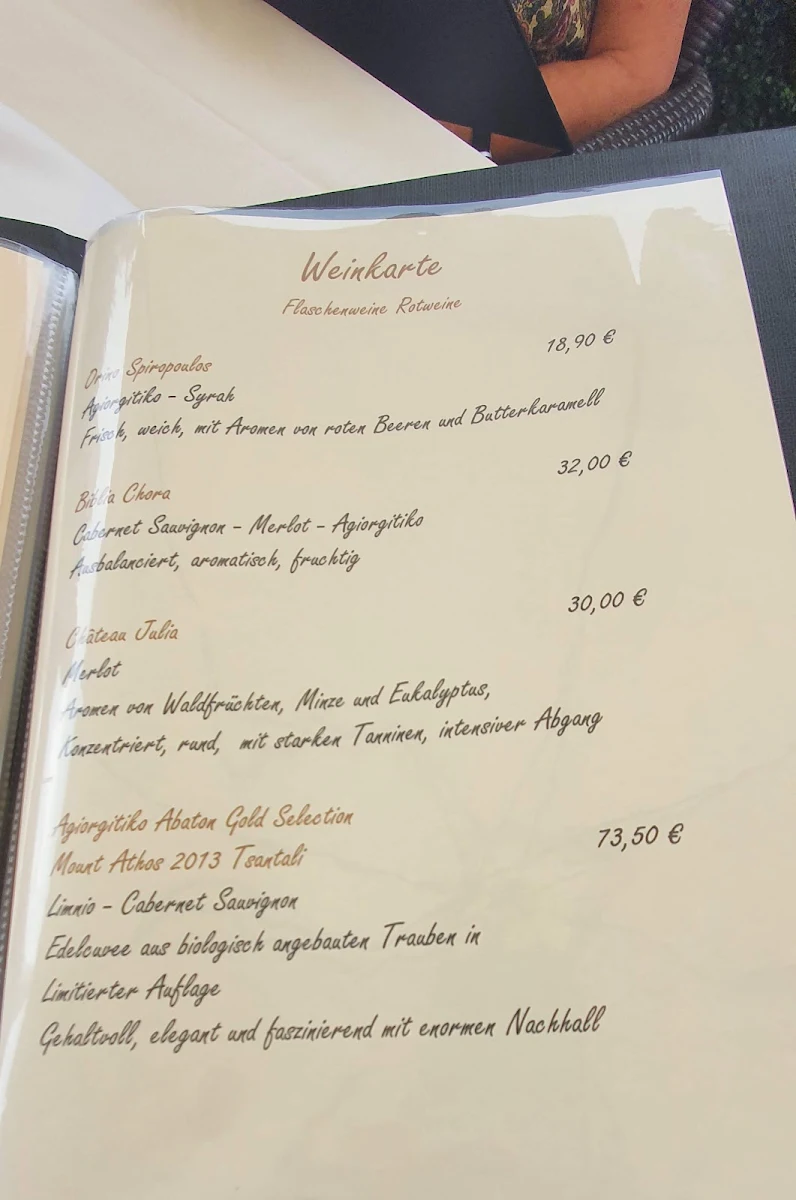 Weinkarte
Flaschenweine Rotweine
18,90 €
Orino Spiropoulos
Agiorgitiko - Syrah
Frisch, weich, mit Aromen von roten Beeren und Butterkaramell
32,00 €
Biblia Chora
Cabernet Sauvignon - Merlot - Agiorgitiko
Ausbalanciert, aromatisch, fruchtig
30,00 €
Château Julia
Merlot
Aromen von Waldfrüchten, Minze und Eukalyptus,
Konzentriert, rund, mit starken Tanninen, intensiver Abgang
Agiorgitiko Abaton Gold Selection
73,50 €
Mount Athos 2013 Tsantali
Limnio - Cabernet Sauvignon
Edelcuvee aus biologisch angebauten Trauben in
Limitierter Auflage
Gehaltvoll, elegant und faszinierend mit enormen Nachhall